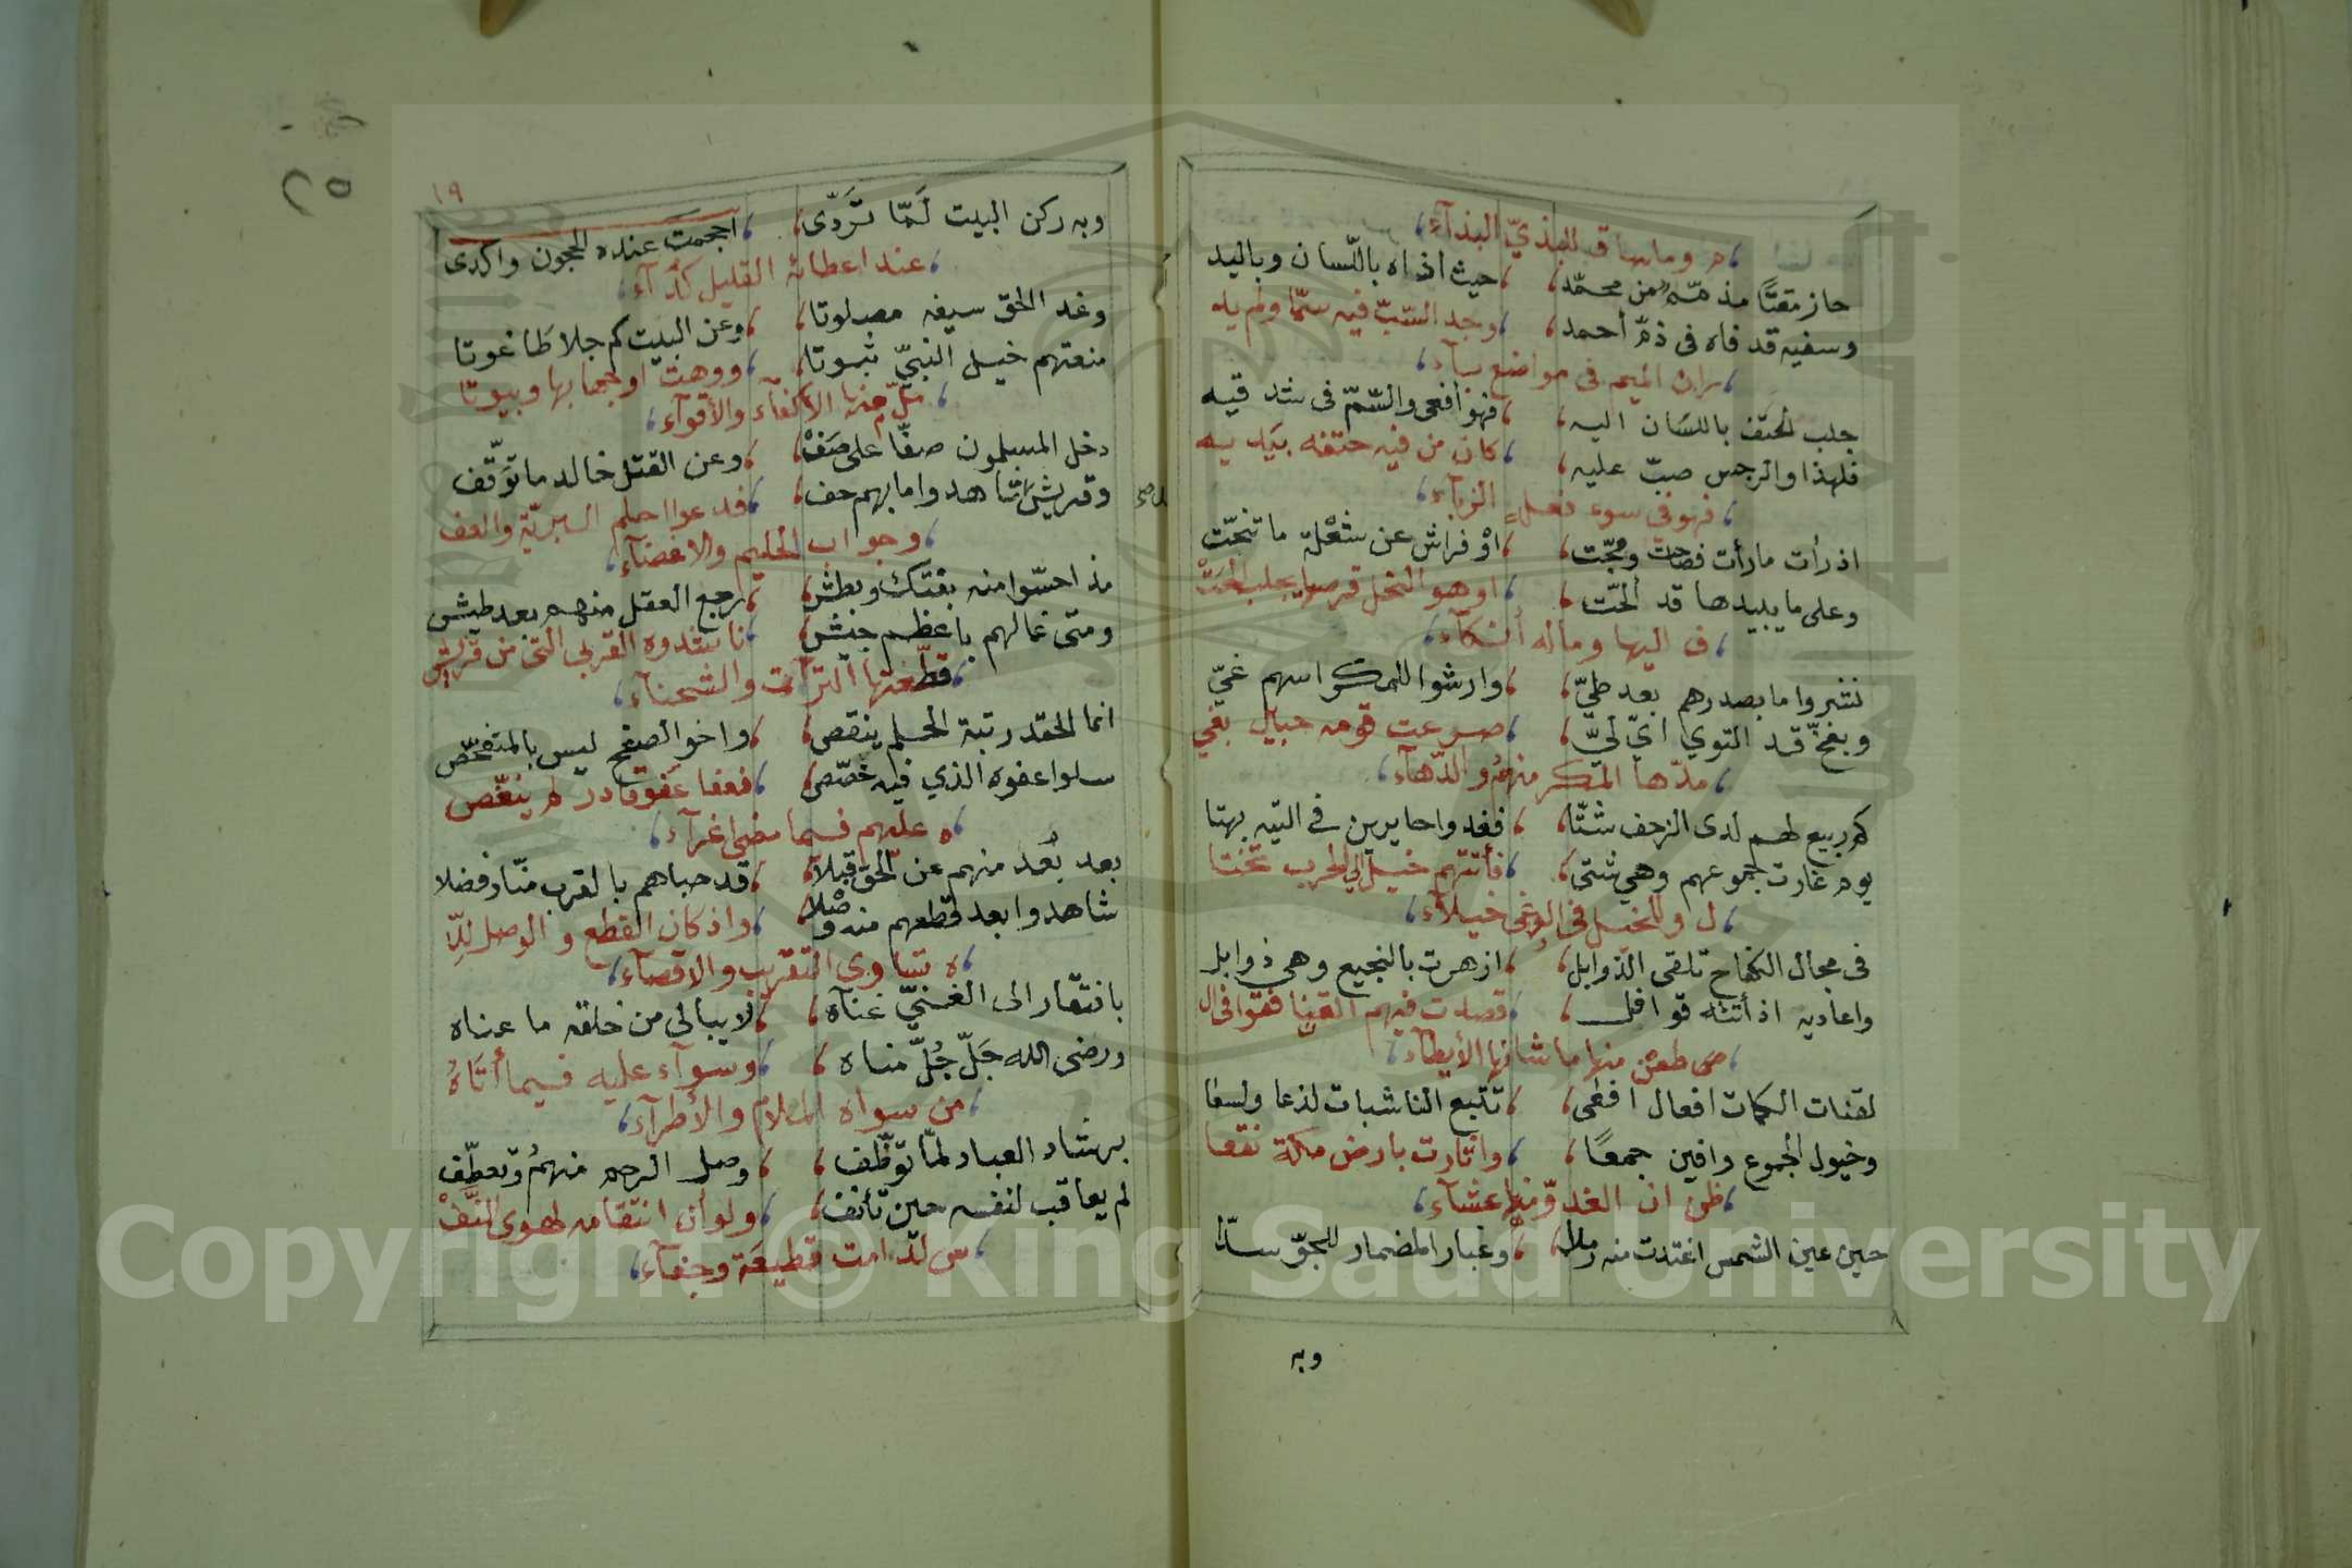 م وما ساق للبذيّ البذآء
حاز مقتًا مذ مسّه من محمّد، حيث اذاه باللّسان وباليد
وسفيه قد فاه فى ذمّ أحمد، وجد السّبّ فيه سمّا ولم يد
ران الميم فى مواضع بآء
جلب الحتف باللسَان اليه، فهو أفعى والسّمّ فى شدقيه
فلهذا والرجس صبّ عليه، كان من فيه حتفه بيديه
فهو فى سوء فعل الزبآء
اذ رأت ما رأت فصاحت وعجّت، اوْ فراش عن شعْلة ما تنحّت
وعلى ما يبيدها قد الحّت، او هو النحل قرصها يجلب الحَتْ
ف اليها وماله أنكآء
نشروا ما بصدرهم بعد طيّ، وارشوا للمكر اسهم غيّ
وبفخّ قد التوي ايّ ليّ، صرعت قومه حبآئل بغي
مدّها المكر منهُم والدّهآء
كم ربيع لهم لدى الزحف شتّا، فغدوا حايرين فى التيه بهتا
يوم غارت جموعهم وهي شتى، فأتتهم خيل إلى الحرب تختا
ل وللخيل فى الوغى خيلآء
فى مجال الكفاح تلقى الذوابل، ازهرت بالنجيع وهي ذوابل
واعاديه اذ أتته قوافل، قصدت فيهم القنا فقوافى ال
طعن منها ما شانها الأيطآء
لقنات الكمات افعال افعى، تتبع الناشبات لذعا ولسعا
وخيول الجموع وافين جمعًا، واثارت بارض مكة نقعا
ظن ان الغدوّ منها عشآء
حين عين الشمس اغتدت منه رملا، وغبار المضمار للجوّ سدّا
وبه
١٩
٢٥
وبه ركن البيت لَمّا تَردّى، احجمت عنده الحجون واكدى
عند اعطائه القليل كدآء
وغد الحق سيفه مصلوتا، وعن البيت كم جلا طاغوتا
منعتهم خيل النبيّ ثبوتا، ودهت اوجها بها وبيوتا
ملّ منها الأكفآء والأقوآء
دخل المسلمون صفّا على صَفْ، وعن القتل خالد ما توَقّف
وقريش شاهدوا ما بهم حف، فدعوا احلم البريّة والعف
و جواب الحليم والاغضآء
مذ احسّوا منه بفتك وبطش، رجع العقل منهم بعد طيش
ومتى غالهم باعظم جيش، ناشدوه القربى التى من قريش
قطّعتها الترآت والشحنآء
انما الحقد رتبة الحلم ينقص، واخو الصفح ليس بالمتفحّص
سلوا عفوه الذي فيه خصّص، فعفا عَفو قادر لم ينغّص
ه عليهم فيما مضى اغرآء
بعد بُعد منهم عن الحق قبلاً، قد حباهم بالقرب منّا وفضلا
شاهدوا بعد قطعهم منه وصْلا، واذ كان القطع والوصل للّا
ه تساوى التقريب والاقصآء
بافتقار الى الغنيّ غناه، لا يبالى من خلقه ما عناه
ورضى الله جَلّ جُلّ مناه، وسوآء عليه فيما أتَاهُ
من سواه الملام والأطرآء
لم يعاقب لنفسه حين تأنف، ولو أن انتقامه لهوى النَّفْ
س لدامت قطيعة وجفآء
Copyright © King Saud University